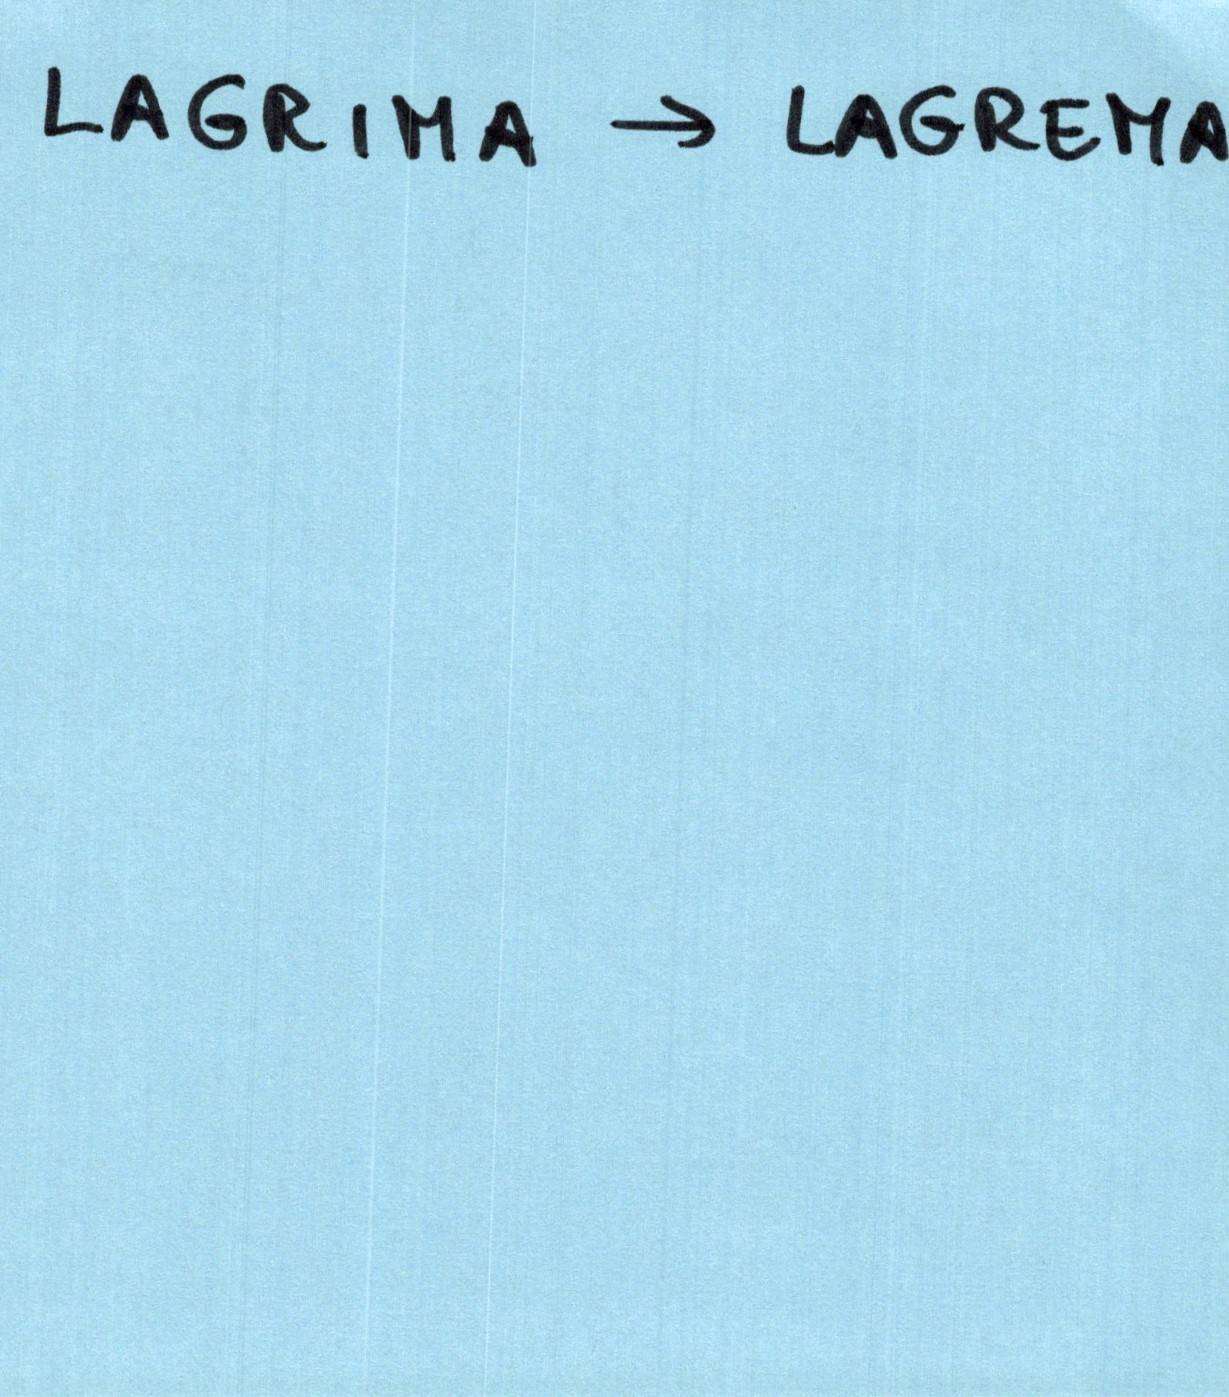 LAGRIMA → LAGREMA